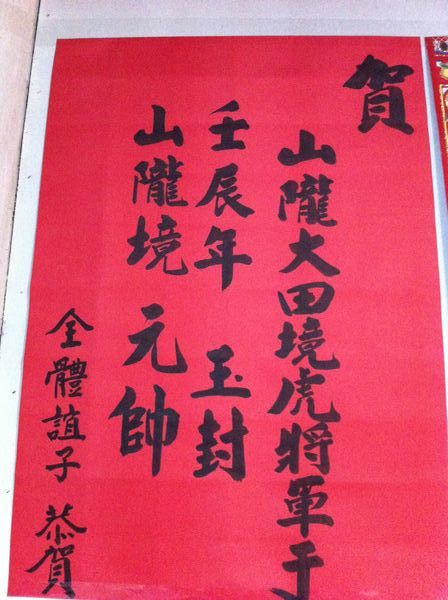 賀
山隴大田境虎將軍于
壬辰年 玉封
山隴境 元帥
全體誼子 恭賀